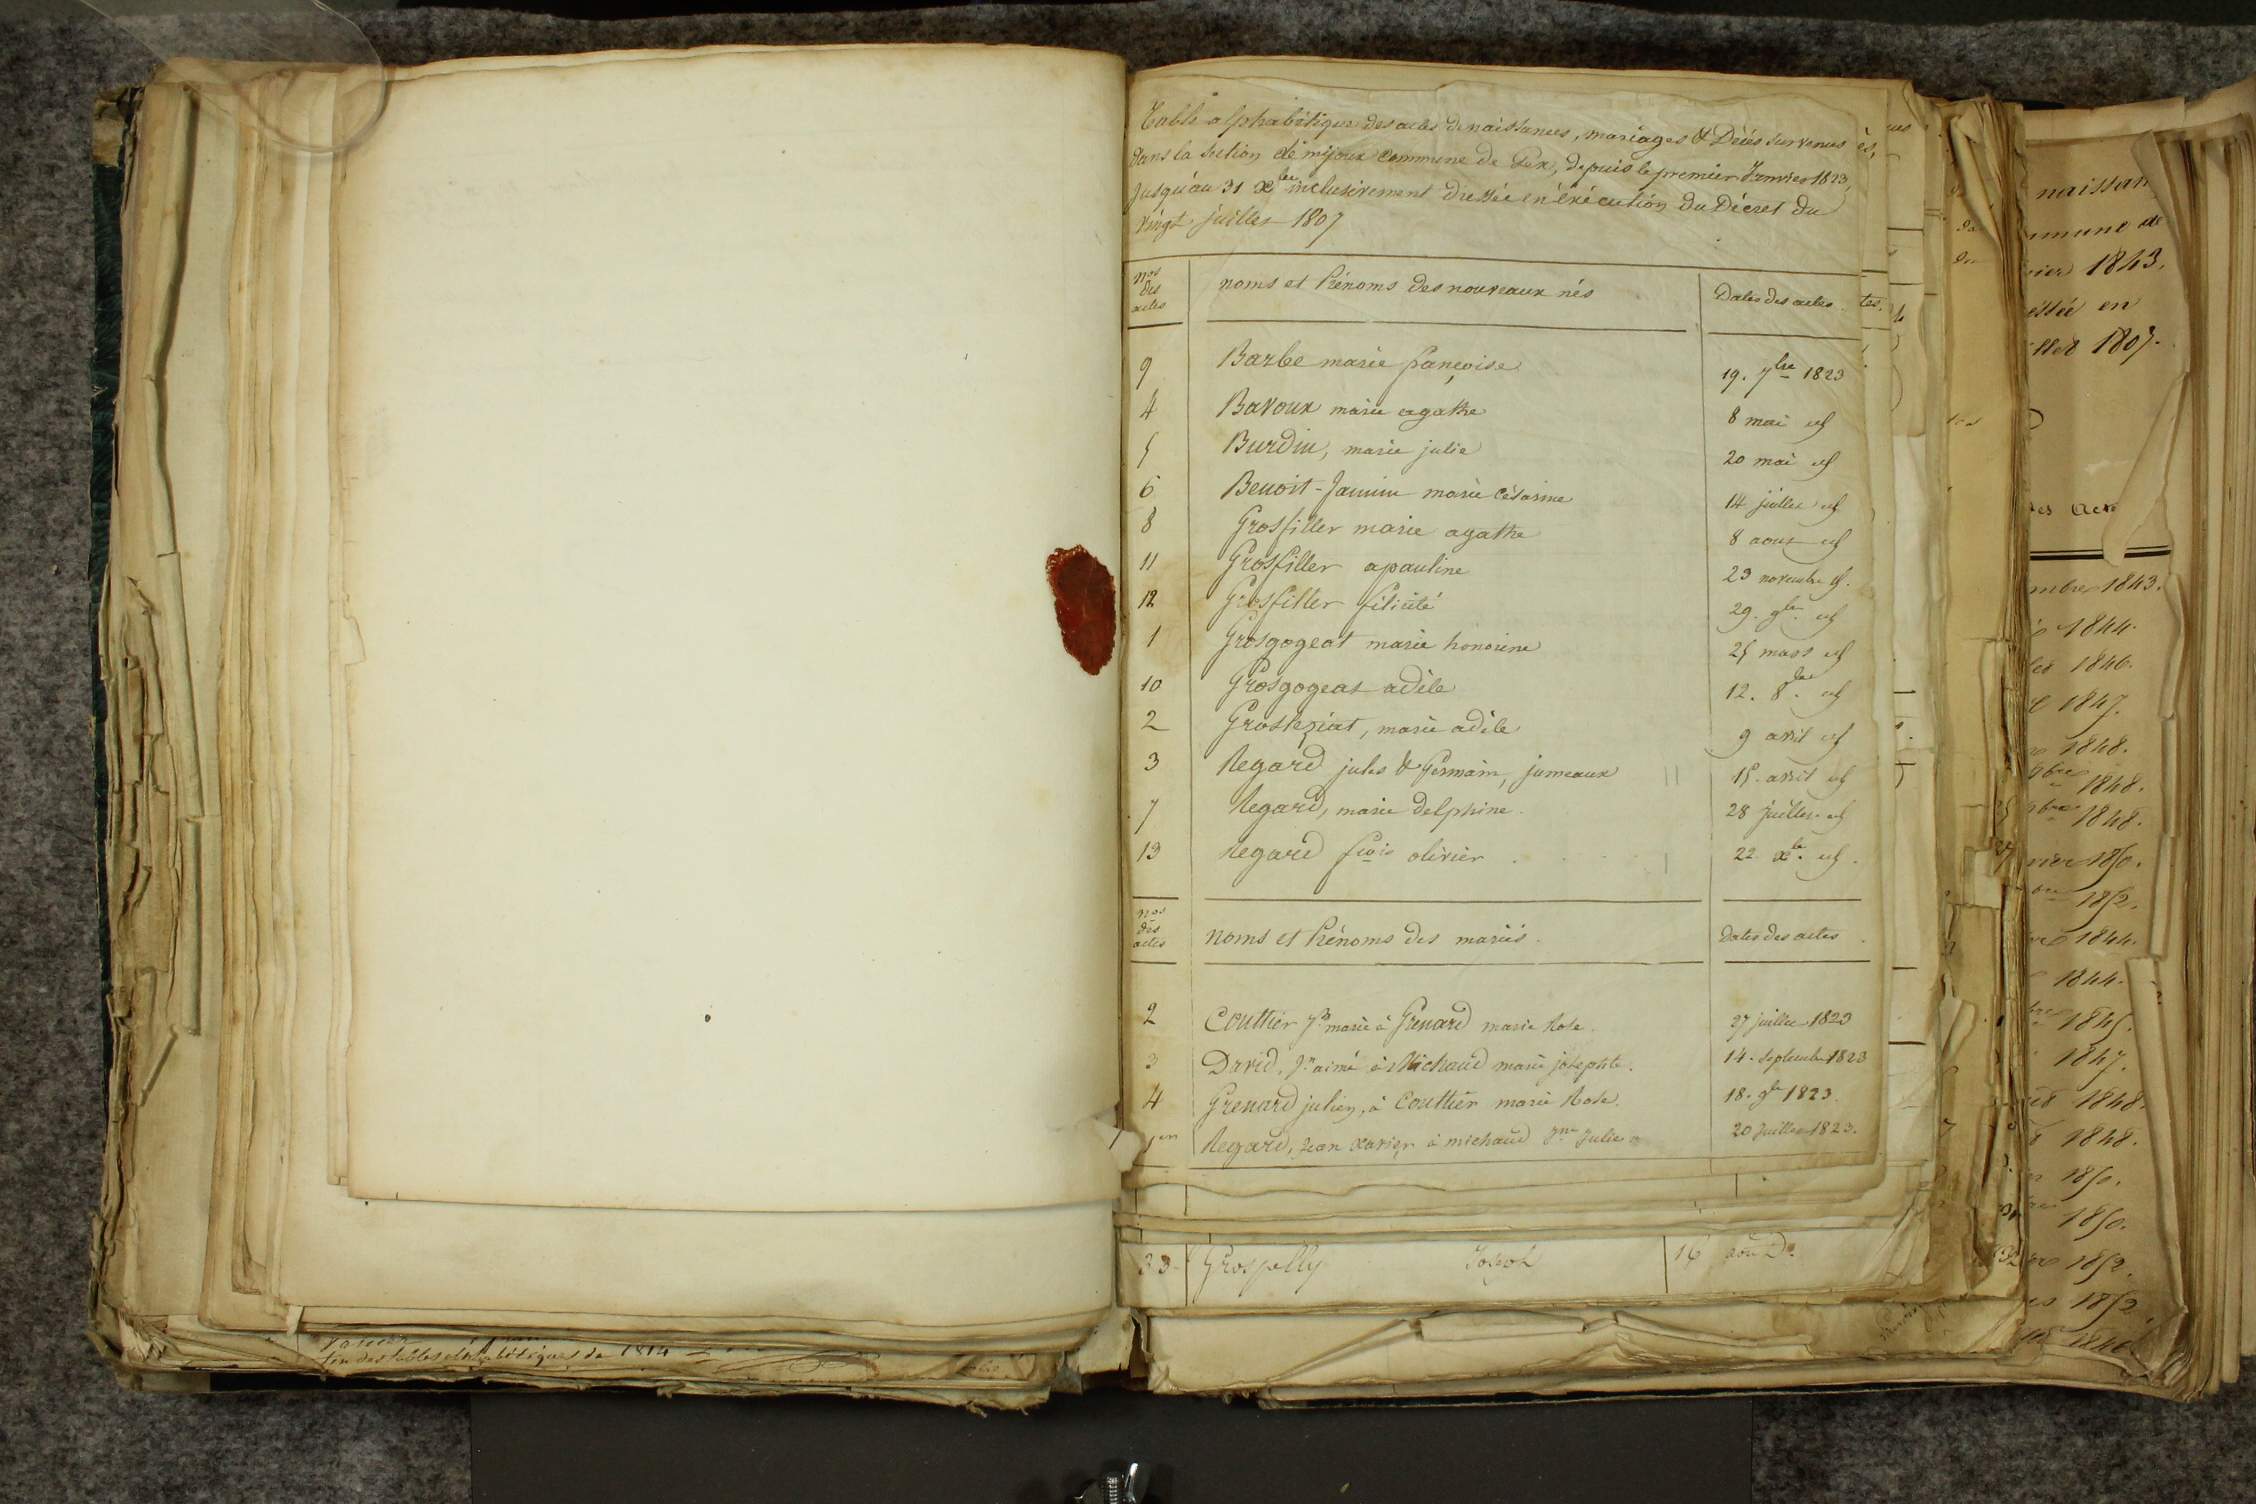 Table alphabétique des actes de naissances, mariages & Décés survenus
dans la section de mijoux commune de Gex, depuis le premier Janvier 1823,
jusqu'au 31 Xbre inclusivement dressée en éxécution du Décret du
vingt juillet 1807
nos des actes noms et Prénoms des nouveaux nés Dates des actes
9 Barbe marie françoise 19. 7bre 1823
4 Bavoux marie agathe 8 mai id
5 Burdin, marie julie 20 mai id
6 Benoit-Jannin marie césarine 14 juillet id
8 Grosfiller marie agathe 8 aout id
11 Grosfiller apauline 23 novembre id.
12 Grosfiller félicité 29. 9bre id
1 Grosgogeat marie honorine 25 mars id
10 Grosgogeat adèle 12. 8bre id
2 Grosteziat, marie adèle 9 avril id
3 Regard jules & Germain, jumeaux 15. avril id
7 Regard, marie delphine. 28 juillet id
13 Regard fçois olivier 22 xbre id.
nos des actes noms et Prénoms des mariés. Dates des actes.
2 Couttier marie à Grenard marie Rose. 27 juillet 1823
3 David, Jn aimé à Michaud marie josephte. 14. septembre 1823
4 Grenard julien, à Couttier marie Rose. 18. 9bre 1823.
1er Regard, Jean xavier à michaud Jne Julie 20 Juillet 1823.
33 Grospelly Joseph 16 aou Do
fin des tables alphabétiques de 1814
naissan
mmune de
vier 1843.
essée en
illet 1807.
des Act
mbre 1843.
1844.
1846.
1847.
1848.
9bre 1848.
9bre 1848.
vier 1850.
1852.
1844.
1844.
1845.
1847.
1848.
1848.
1850.
1850.
1852.
1852
1846